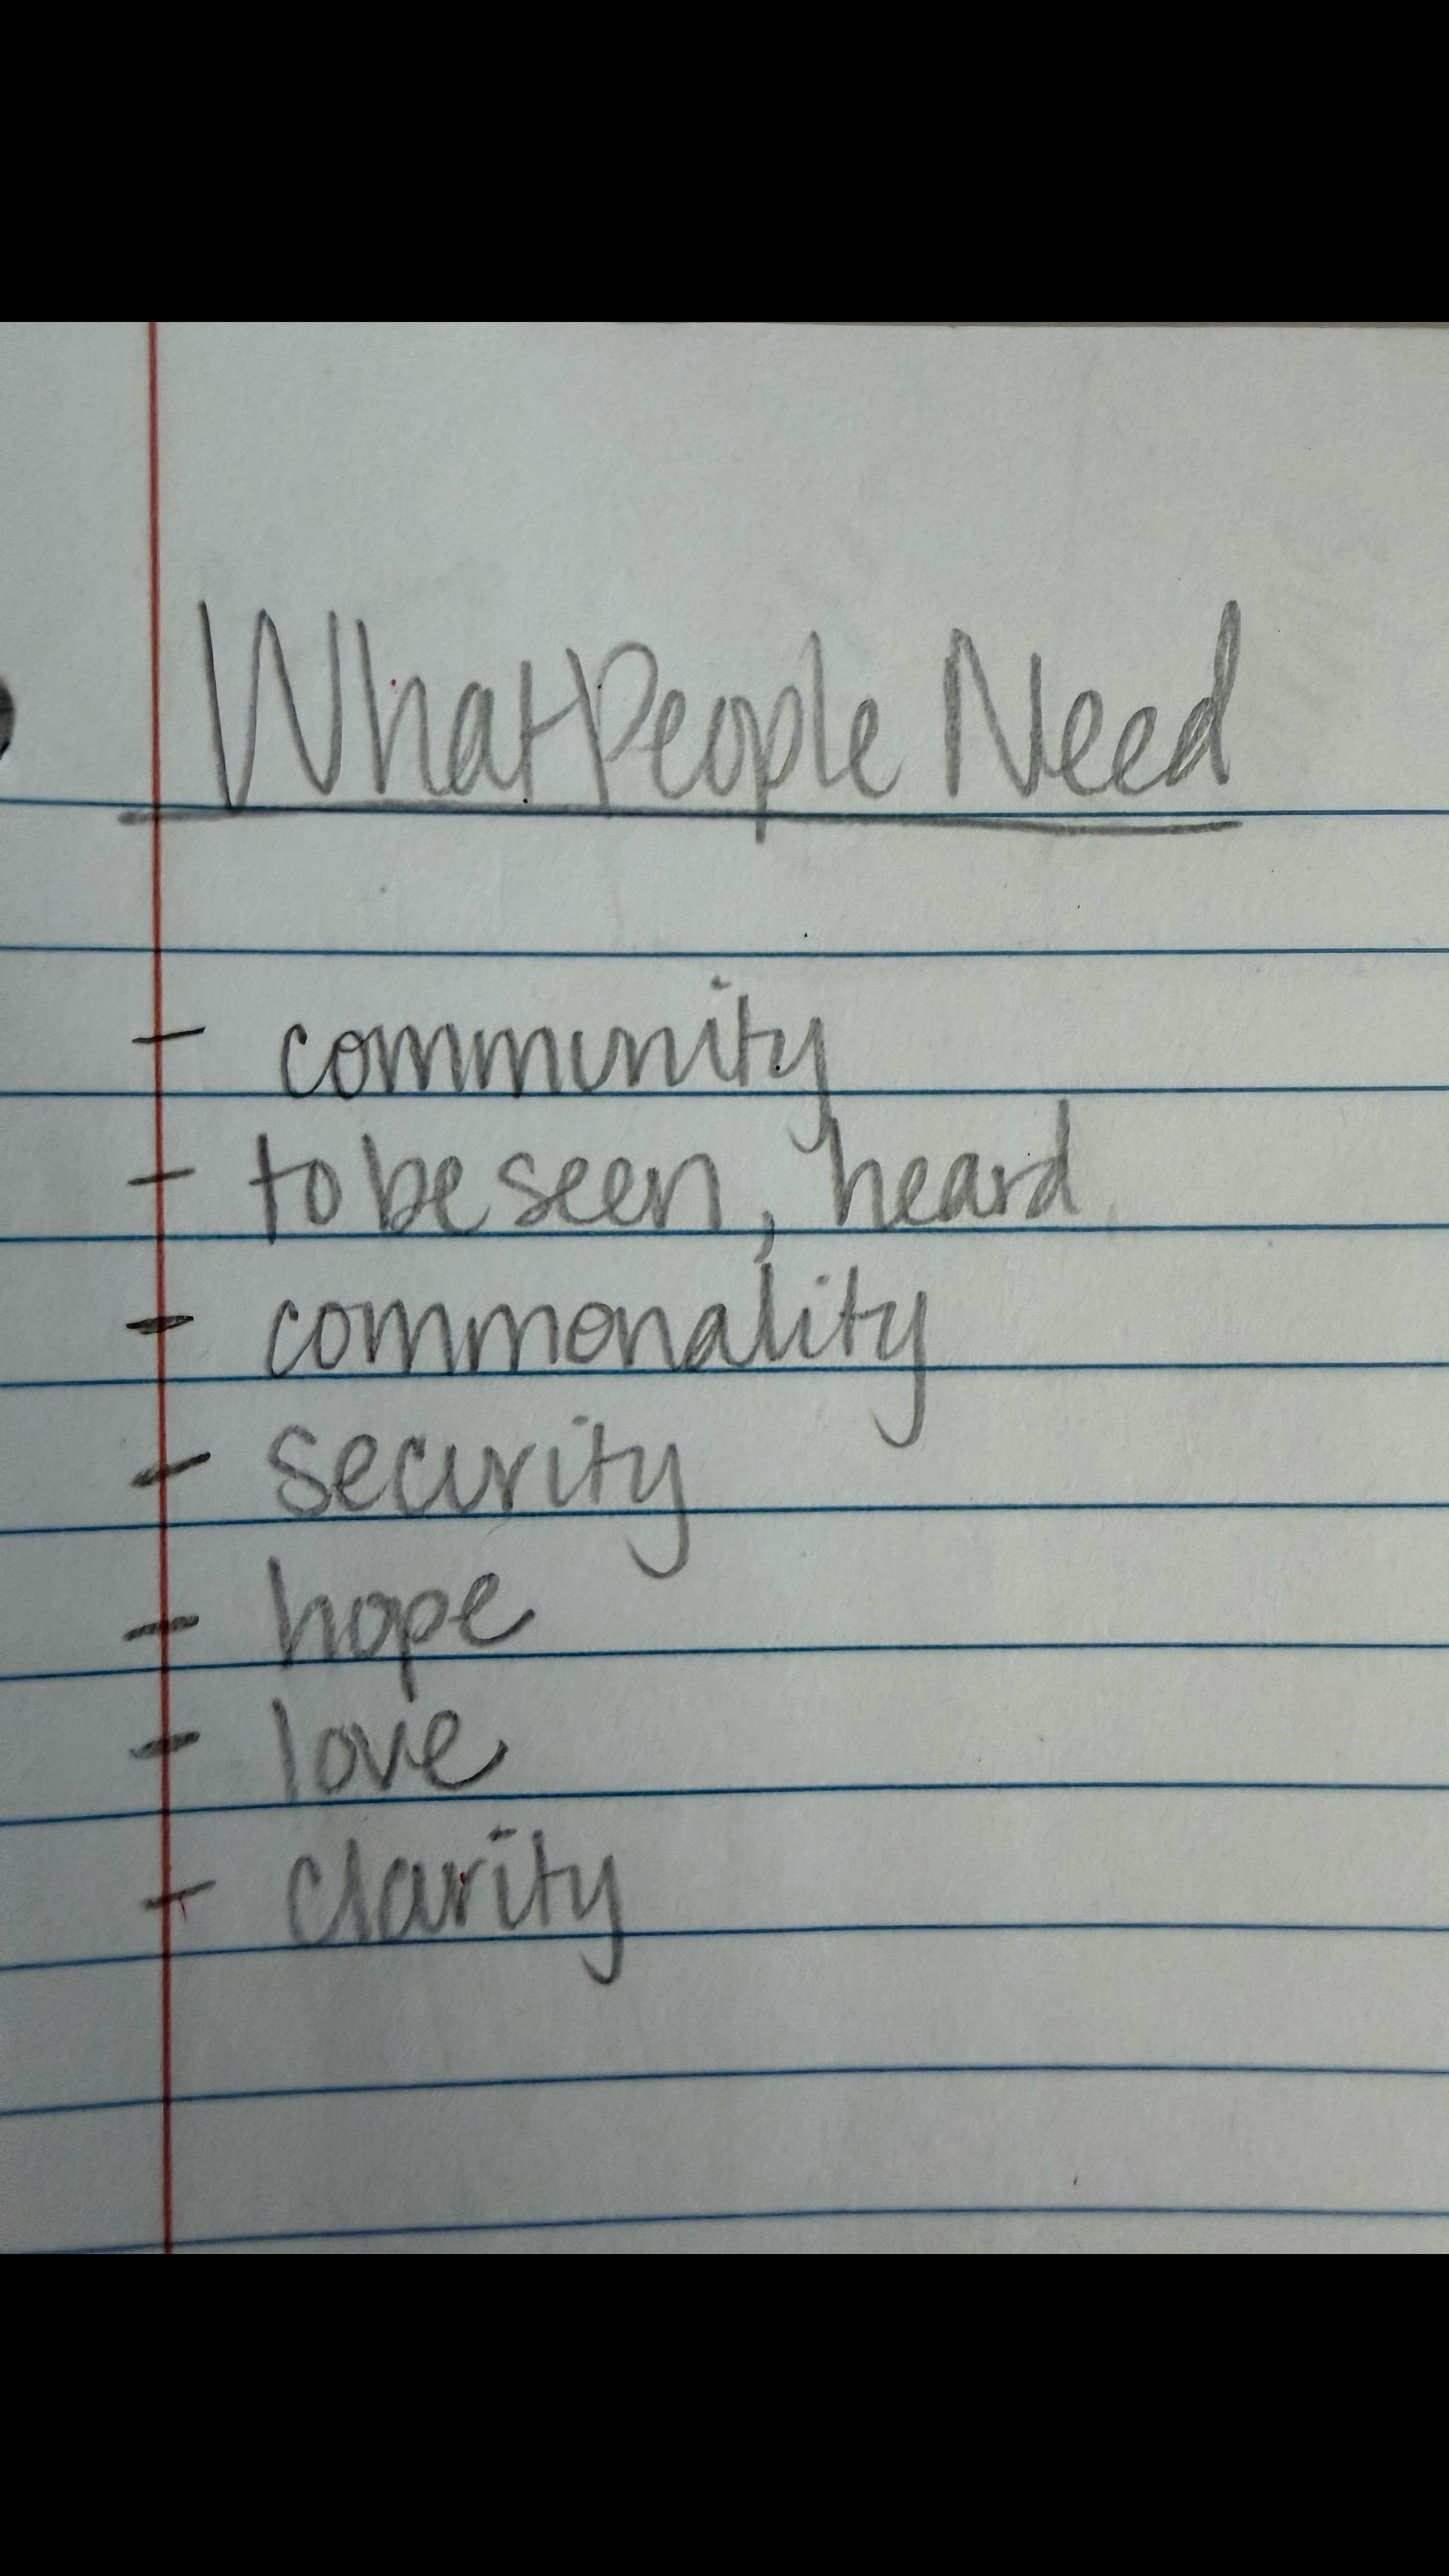 What People Need
- community
- to be seen, heard
- commonality
- security
- hope
- love
- clarity